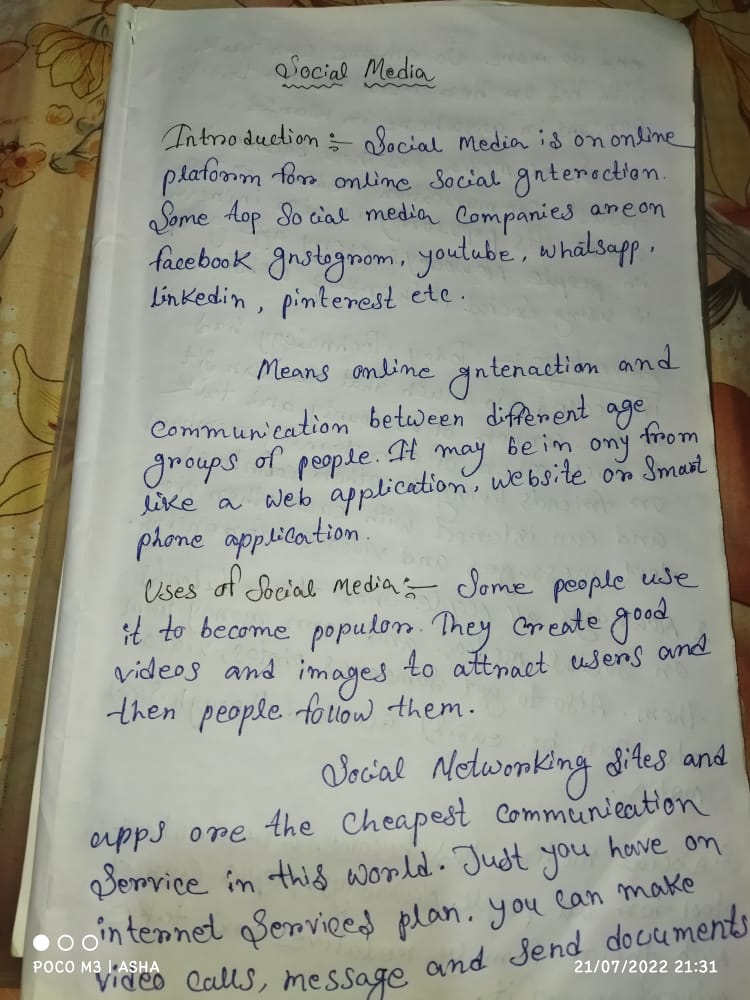 Social Media
Introduction :- Social Media is on online
plaform for online Social gnteroction.
Some top Social media Companies are on
facebook gnstognom, youtube, whatsapp,
linkedin, pinterest etc.
Means online gntenaction and
Communication between different age
groups of people. It may be in ony from
like a web application, website or Smart
phone application.
Uses of Social Media :- Some people use
it to become populon. They Create good
videos and images to attract users and
then people follow them.
Social Networking Sites and
apps ore the Cheapest Communication
Service in this world. Just you have on
internet Services plan. you can make
video calls, message and Send documents
POCO M3 | ASHA
21/07/2022 21:31